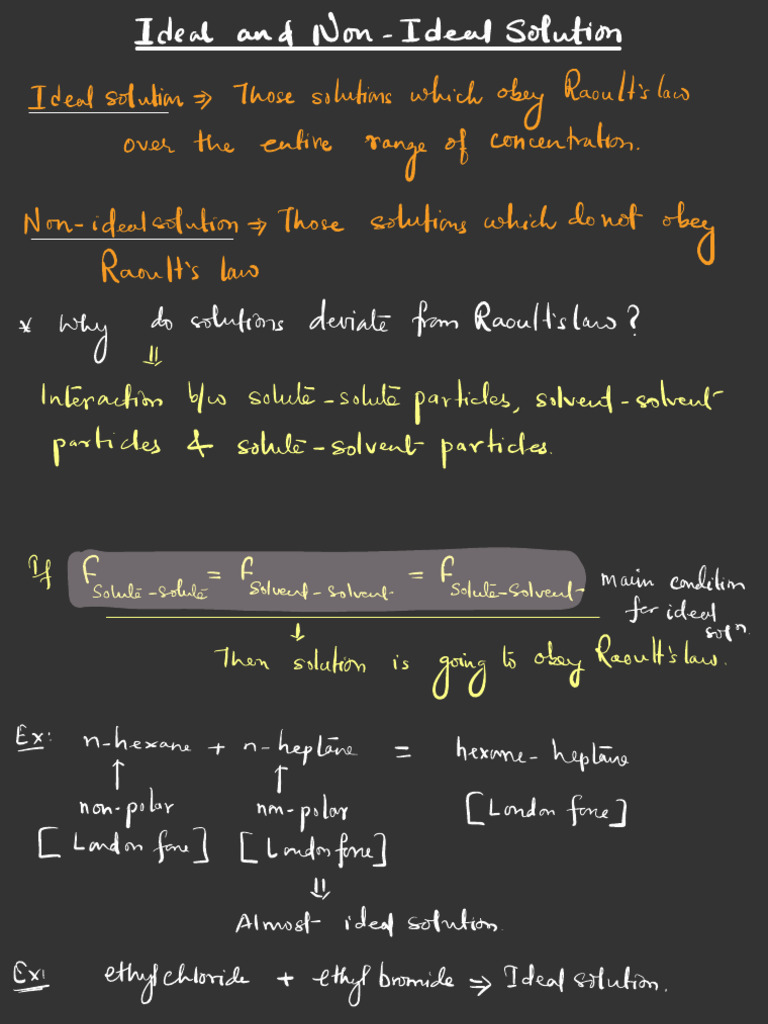 Ideal and Non-Ideal Solution
Ideal solution ⇒ Those solutions which obey Raoult's law
over the entire range of concentration.
Non-ideal solution ⇒ Those solutions which do not obey
Raoult's law
* Why do solutions deviate from Raoult's law?
⇓
Interaction b/w solute-solute particles, solvent-solvent
particles & solute-solvent particles.
If F solute-solute = F solvent-solvent = F solute-solvent main condition
for ideal
solⁿ.
↓
Then solution is going to obey Raoult's law.
Ex: n-hexane + n-heptane = hexane-heptane
↑ ↑
non-polar non-polar [London force]
[London force] [London force]
⇓
Almost ideal solution.
Ex: ethylchloride + ethyl bromide ⇒ Ideal solution.